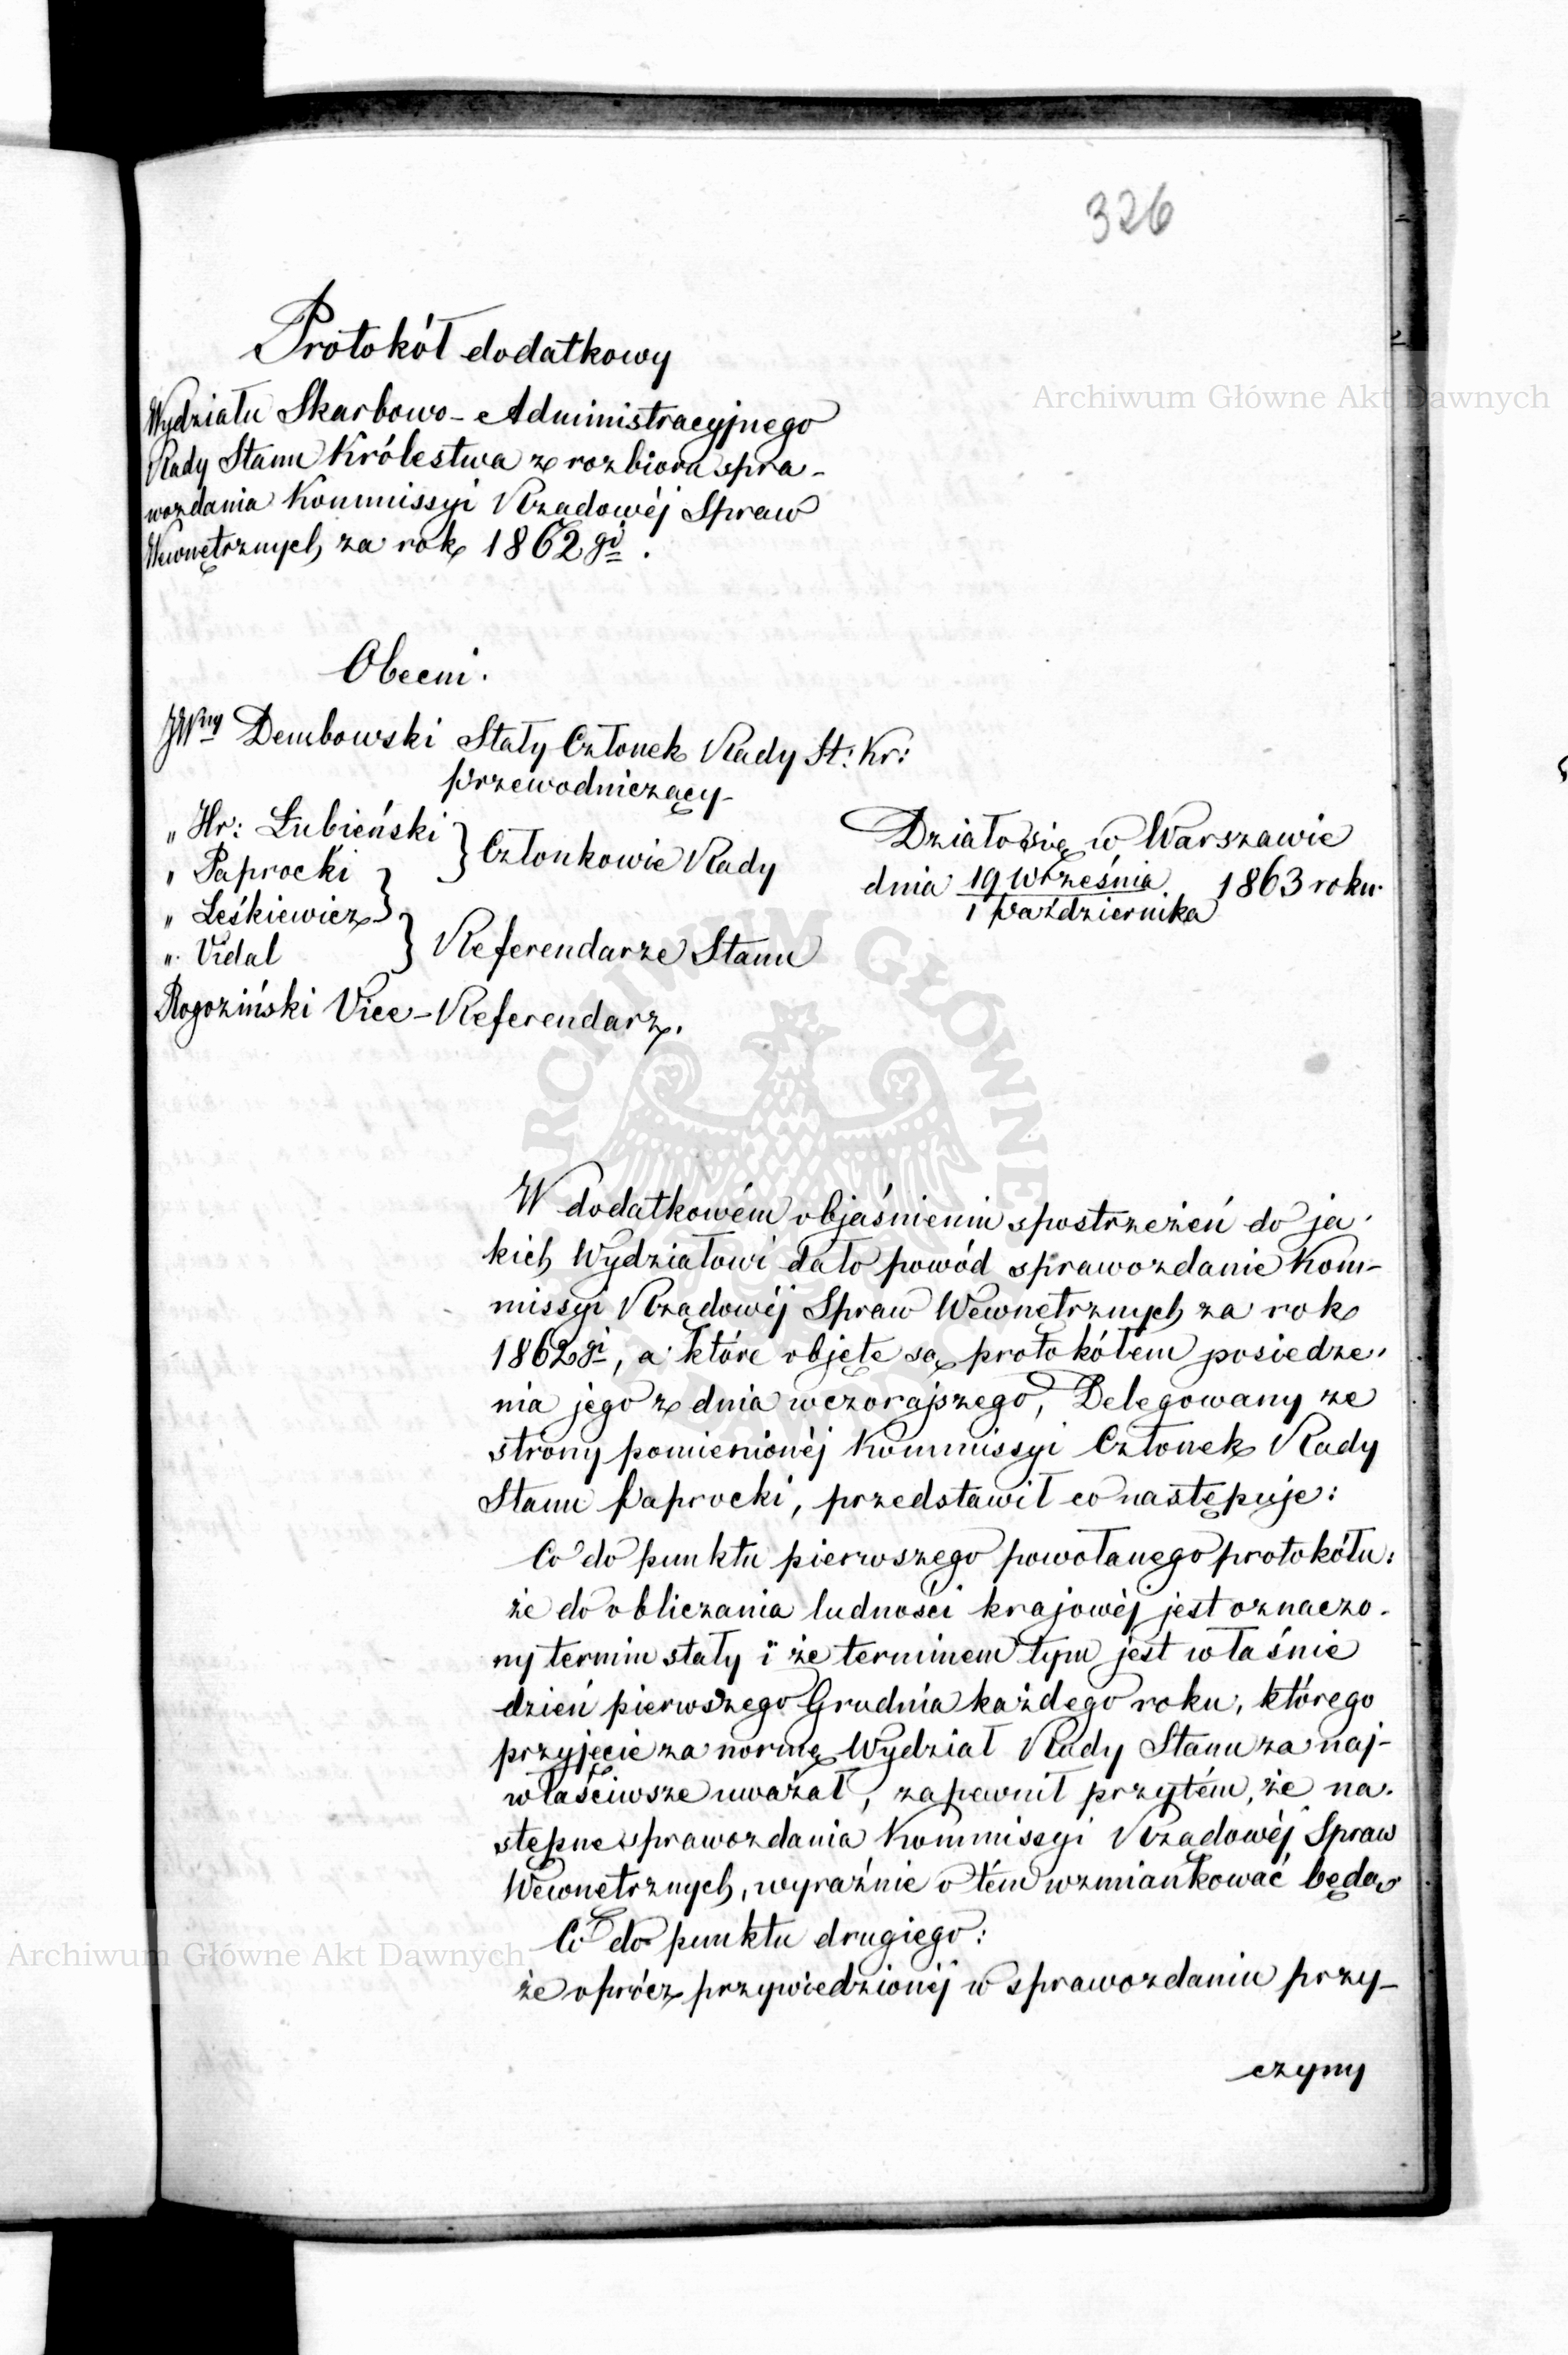 326
Protokół dodatkowy
Wydziału Skarbowo-Administracyjnego
Rady Stanu Królestwa z rozbioru spra-
wozdania Kommissyi Rządowéj Spraw
Wewnętrznych za rok 1862gi.
Obecni.
JWny Dembowski Stały Członek Rady St: Kr:
przewodniczący
„ Hr: Łubieński } Członkowie Rady
„ Paprocki
„ Leśkiewicz
„ Vidal } Referendarze Stanu
Rogoziński Vice-Referendarz.
Działo się w Warszawie
dnia 19 Września / 1 Października 1863 roku.
W dodatkowém objaśnieniu spostrzeżeń do ja-
kich Wydziałowi dało powód sprawozdanie Kom-
missyi Rządowéj Spraw Wewnętrznych za rok
1862gi, a które objęte są protokółem posiedze-
nia jego z dnia wczorajszego, Delegowany ze
strony pomienionéj Kommissyi Członek Rady
Stanu Paprocki, przedstawił co następuje:
Co do punktu pierwszego powołanego protokółu:
że do obliczania ludności krajowéj jest oznaczo-
ny termin stały i że terminem tym jest właśnie
dzień pierwszego Grudnia każdego roku, którego
przyjęcie za normę Wydział Rady Stanu za naj-
właściwsze uważał, zapewnił przytém, że na-
stępne sprawozdania Kommissyi Rządowéj Spraw
Wewnętrznych, wyraźnie o tém wzmiankować będą.
Co do punktu drugiego:
że oprócz przywiedzionéj w sprawozdaniu przy-
czyny
Archiwum Główne Akt Dawnych
Archiwum Główne Akt Dawnych